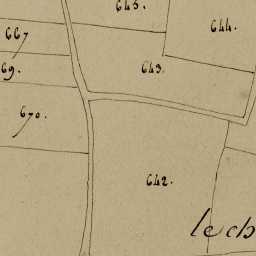 645.
644.
667
643.
69.
670.
642.
lech